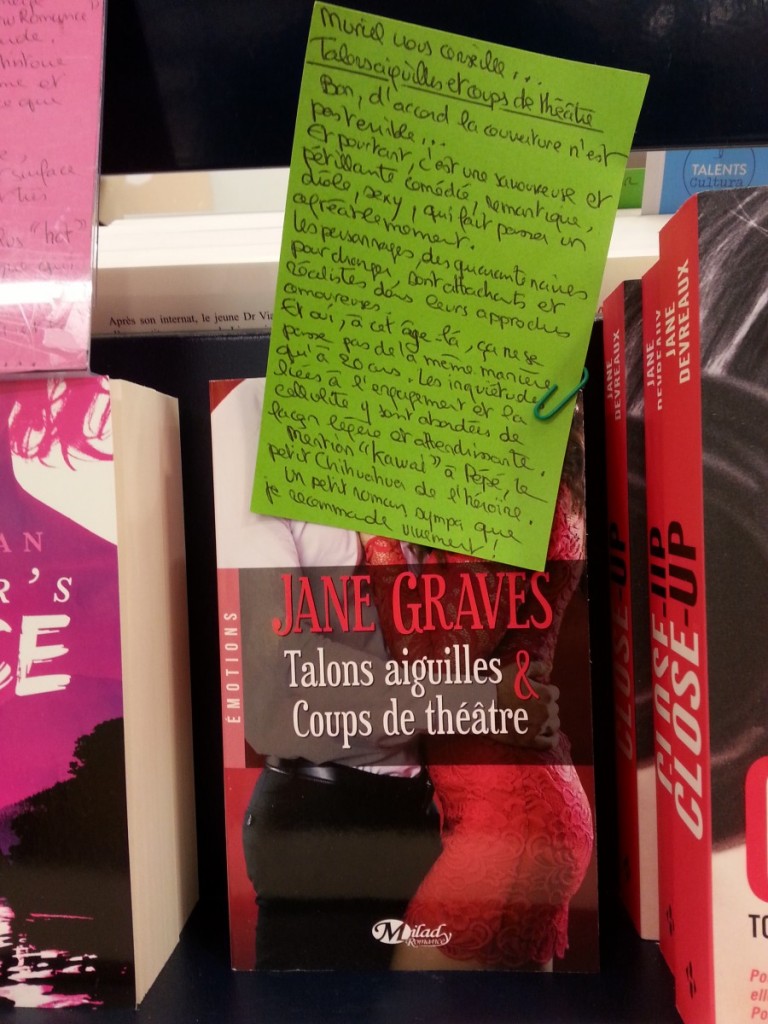 Muriel vous conseille...
Talons aiguilles et coups de théâtre
Bon, d'accord la couverture n'est
pas terrible...
Et pourtant, c'est une savoureuse et
pétillante comédie, romantique,
drôle, sexy, qui fait passer un
agréablement.
Les personnages, des quarantenaires
pour changer, sont attachants et
réalistes dans leurs approches
amoureuses.
Et oui, à cet âge-là, ça ne se
passe pas de la même manière
qu'à 20 ans. Les inquiétudes
liées à l'engagement et la
cellulite y sont abordées de
façon légère et attendrissante.
Mention "Kawaï" à Pépé, le
petit Chihuahua de l'héroïne.
Un petit roman sympa que
je recommande vivement !
TALENTS
Cultura
Après son internat, le jeune Dr Via
JANE GRAVES
Talons aiguilles &
Coups de théâtre
ÉMOTIONS
Milady
Romance
AN
R'S
CE
JANE DEVREAUX
CLOSE-UP
JANE DEVREAUX
CLOSE-UP
JANE DEVREAUX
CLOSE-UP
TO
Romance"
"hot"
surface